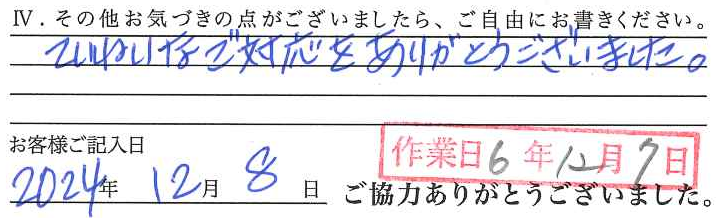 Ⅳ．その他お気づきの点がございましたら、ご自由にお書きください。
ていねいなご対応をありがとうございました。
お客様ご記入日
作業日6年12月7日
2024年 12月 8日 ご協力ありがとうございました。